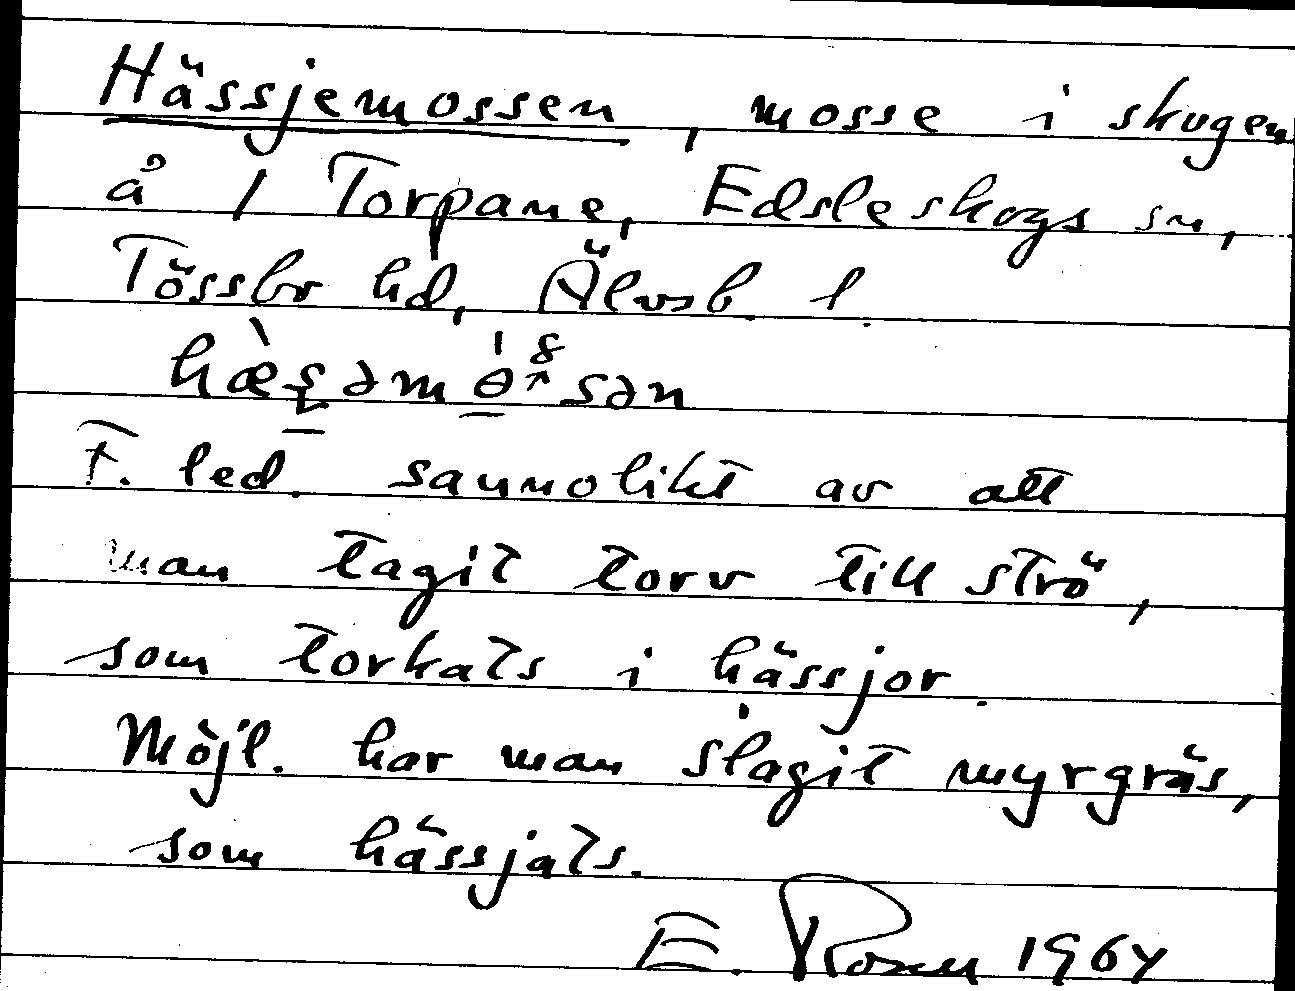 Hässjemossen, mosse i skogen
å 1 Torpane, Edsleskogs sn,
Tössbo hd, Älvsb. l.
F. led. sannolikt av att
man tagit torv till strö,
som torkats i hässjor.
Möjl. har man slagit myrgräs,
som hässjats.
E. Rosen 1964